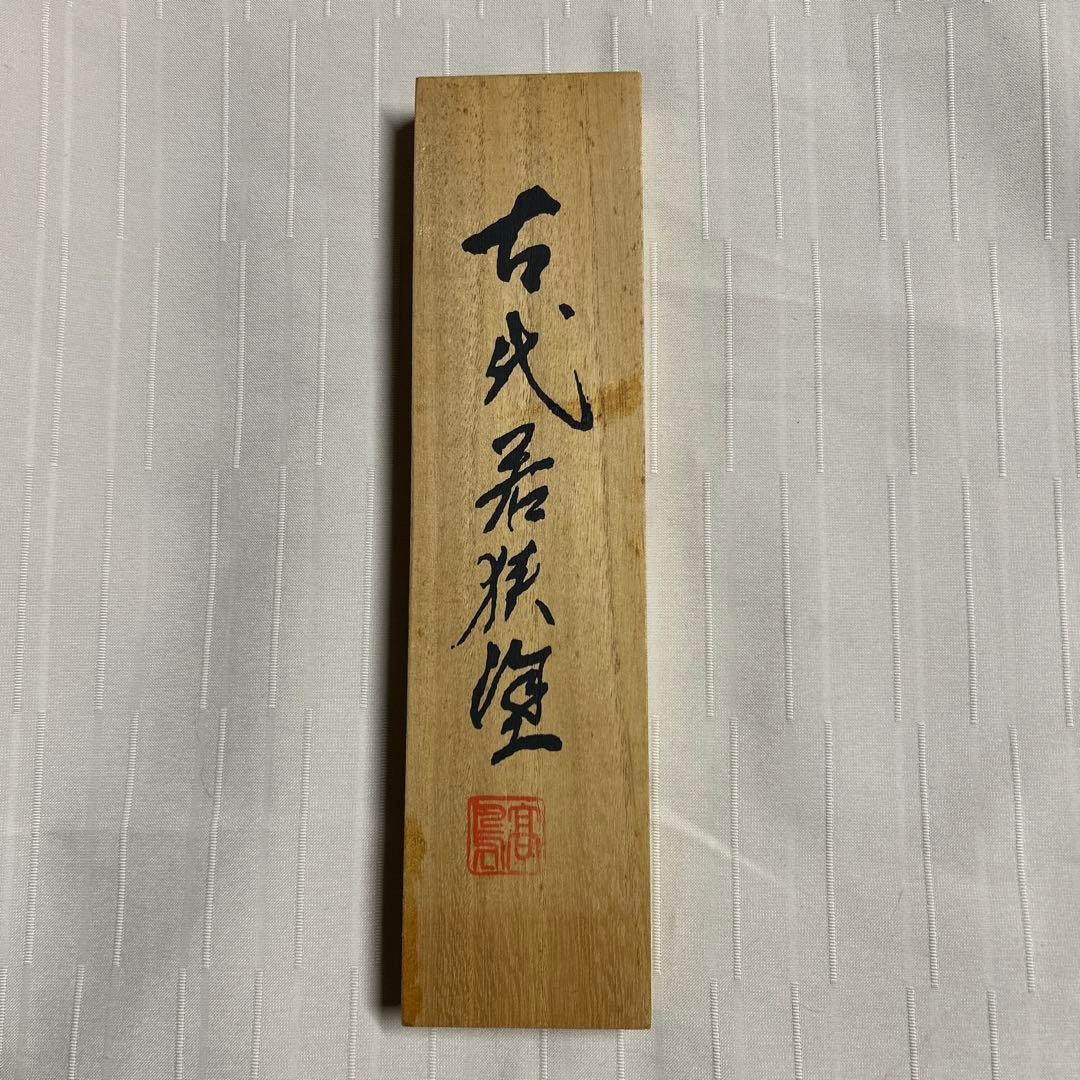 古代若狭塗